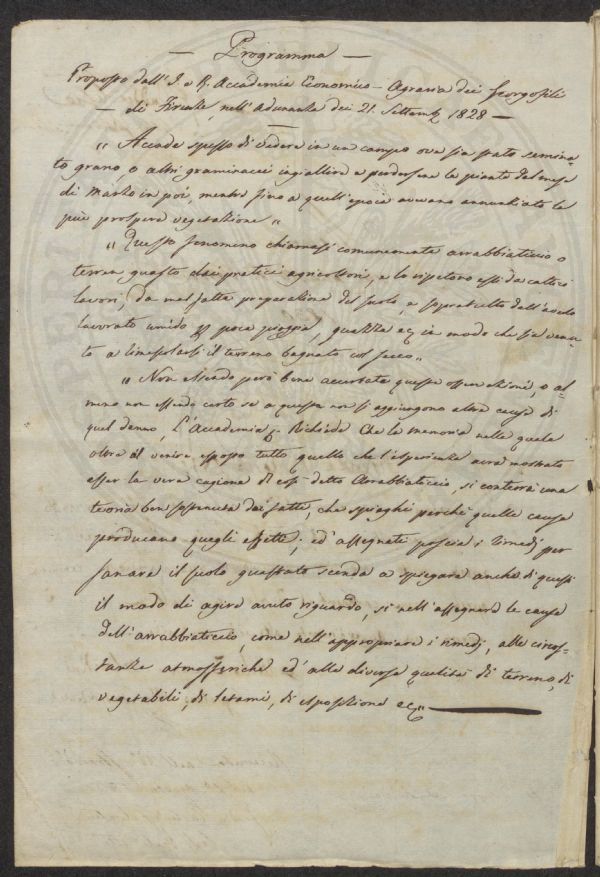 — Programma —
Proposto dall'I. e R. Accademia Economico-Agraria dei Georgofili
— di Firenze, nell'Adunanza dei 21. Settemb. 1828 —
" Accade spesso di vedere in un campo ove sia stato semina-
to grano, o altri graminacei ingiallire e perdersene le piante dal mese
di Marzo in poi, mentre fino a quell'epoca avevano annunziato la
più prospera vegetazione "
" Questo fenomeno chiamasi comunemente arrabbiaticcio o
terra guasta dai pratici agricoltori, e lo ripetono essi da cattivi
lavori, da mal fatta preparazione del suolo, e sopratutto dall'averlo
lavorato umido per poca pioggia, guazza ec in modo che sia venu-
to a mescolarsi il terreno bagnato col secco "
" Non essendo però bene accertate queste osservazioni, o al-
meno non essendo certo se a queste non si aggiungono altre cause di
quel danno, L'Accademia Richiede Che la memoria nella quale
oltre al venire esposto tutto quello che l'esperienza avrà mostrato
esser la vera cagione di detto Arrabbiaticcio, si contenga una
teoria ben sostenuta dai fatti, che spieghi perchè quelle cause
producano quegli effetti; ed assegnati poscia i rimedj per
sanare il suolo guastato scenda a spiegare anche di questi
il modo di agire avuto riguardo, si nell'assegnare le cause
dell'arrabbiaticcio, come nell'appropriare i rimedj, alle circos-
tanze atmosferiche ed alle diverse qualità di terreno, di
vegetabili, di letami, di esposizione ec "